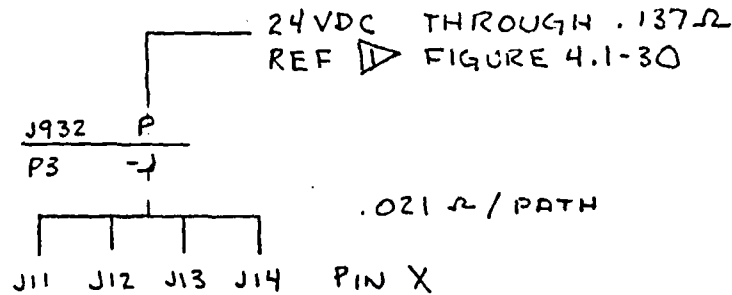 24VDC THROUGH .137Ω
REF 1 FIGURE 4.1-30
J932 P
P3
.021 Ω / PATH
J11 J12 J13 J14 PIN X